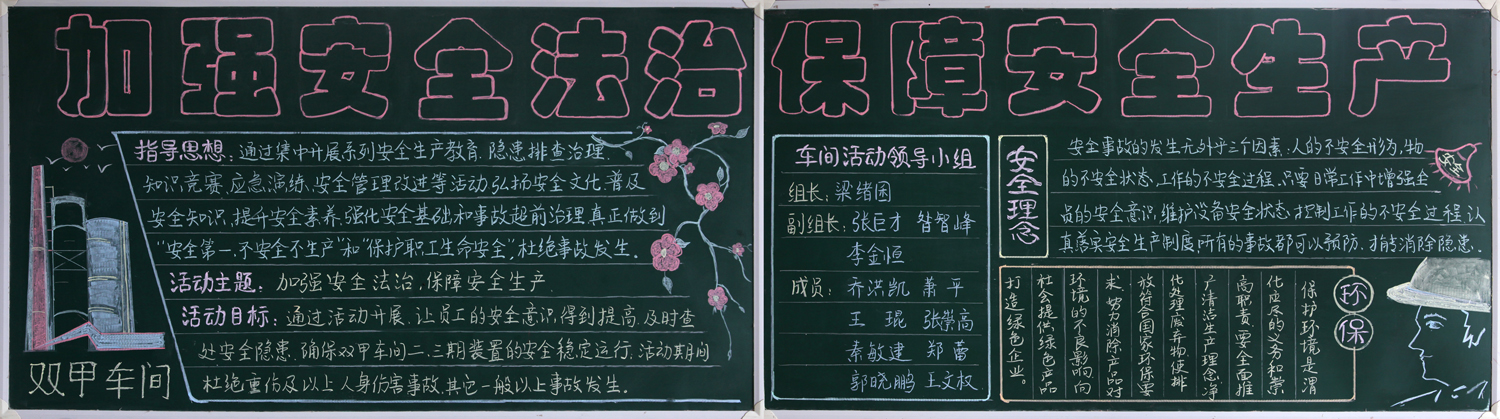 加强安全法治 保障安全生产
指导思想：通过集中开展系列安全生产教育、隐患排查治理、
知识竞赛、应急演练、安全管理改进等活动弘扬安全文化、普及
安全知识，提升安全素养，强化安全基础和事故超前治理，真正做到
“安全第一、不安全不生产”和“保护职工生命安全”，杜绝事故发生。
活动主题：加强安全法治，保障安全生产
活动目标：通过活动开展，让员工的安全意识得到提高，及时查
处安全隐患，确保双甲车间二、三期装置的安全稳定运行，活动期间
杜绝重伤及以上人身伤害事故，其它一般以上事故发生。
双甲车间
车间活动领导小组
组长：梁绪囤
副组长：张巨才 昝智峰
李金恒
成员：乔洪凯 萧平
王琨 张崇高
秦敏建 郑蕾
郭晓鹏 王文权
安全理念
安全事故的发生无外乎三个因素，人的不安全形为，物
的不安全状态，工作的不安全过程，只要日常工作中增强全
员的安全意识，维护设备安全状态，控制工作的不安全过程，认
真落实安全生产制度，所有的事故都可以预防，排除消除隐患。
安全
环保
保护环境是渭
化应尽的义务和崇
高职责，要全面推
广清洁生产理念，净
化处理废弃物，使排
放符合国家环保要
求，努力消除产品对
环境的不良影响，向
社会提供绿色产品
打造绿色企业。